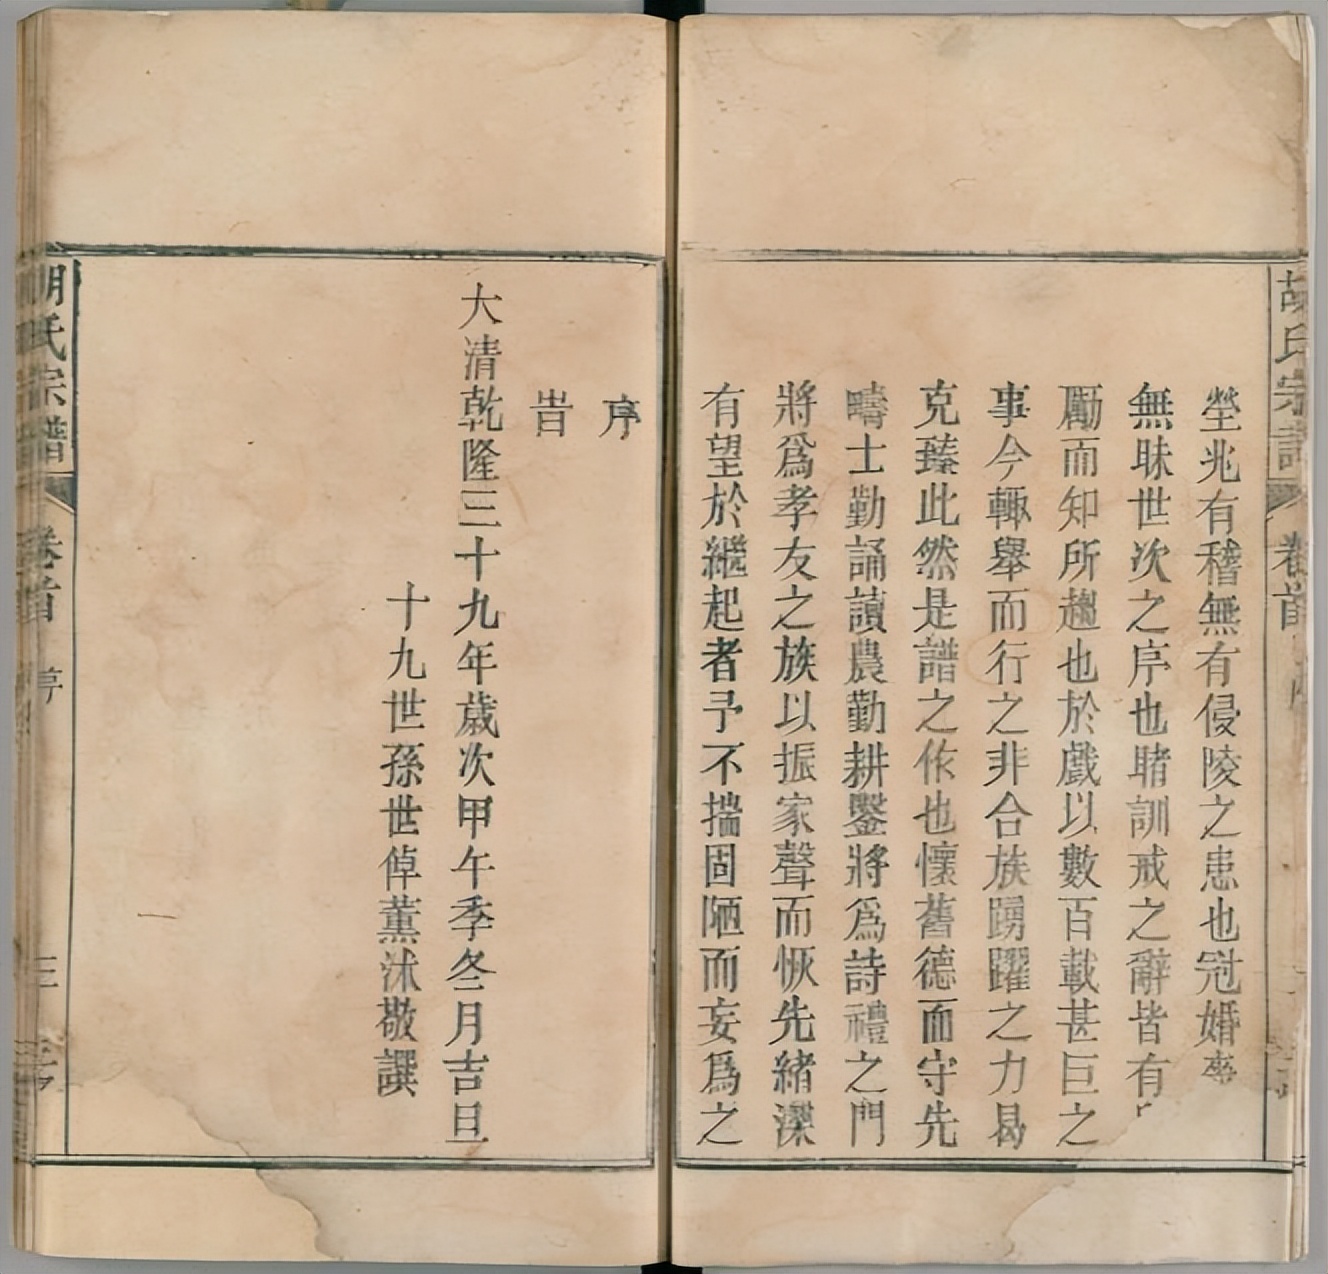 胡氏宗譜
卷首
塋兆有稽無有侵陵之患也冠婚
無昧世次之序也睹訓戒之辭皆有
勵而知所趨也於戲以數百載甚巨之
事今輒舉而行之非合族踴躍之力曷
克臻此然是譜之作也懷舊德而守先
疇士勤誦讀農勤耕鑿將爲詩禮之門
將爲孝友之族以振家聲而恢先緒深
有望於繼起者予不揣固陋而妄爲之
序
旹
大清乾隆三十九年歲次甲午季冬月吉旦
十九世孫世倬薰沐敬譔
胡氏宗譜
卷首
序
三